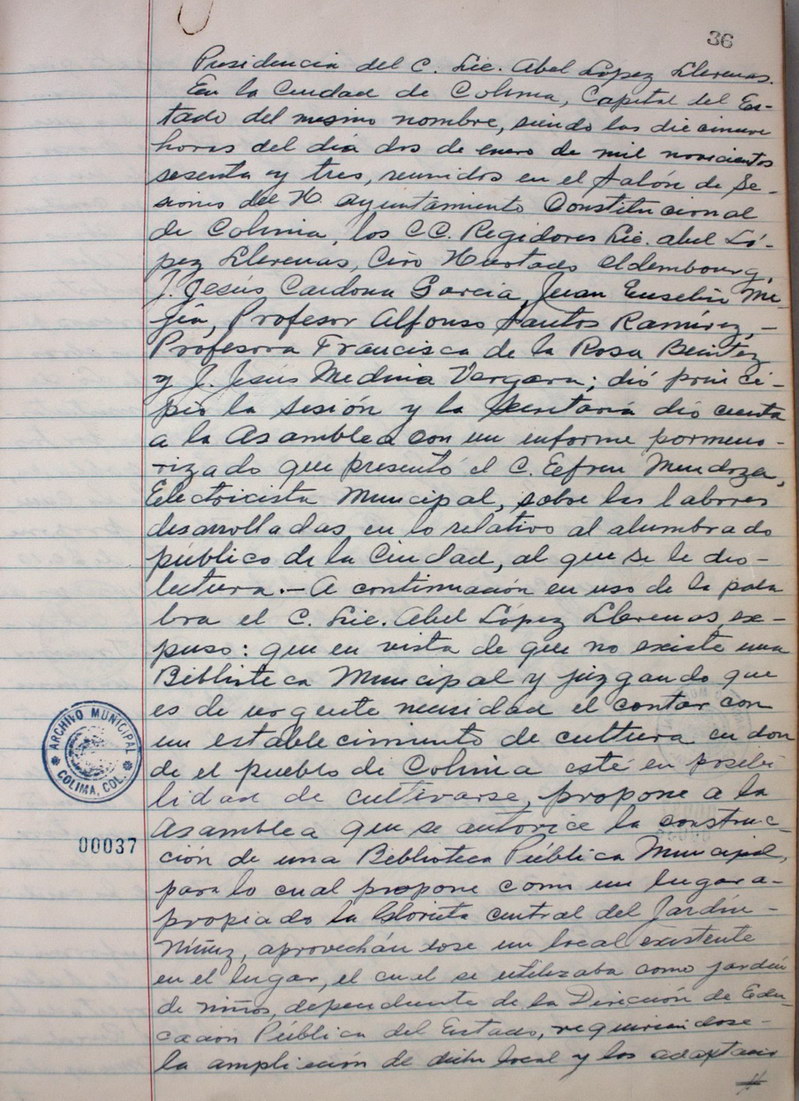 36
Presidencia del C. Lic. Abel López Llerenas.
En la Ciudad de Colima, Capital del Es-
tado del mismo nombre, siendo las diecinueve
horas del día dos de enero de mil novecientos
sesenta y tres, reunidos en el Salón de Se-
siones del H Ayuntamiento Constitucional
de Colima, los CC. Regidores Lic. Abel Ló-
pez Llerenas, Ciro Hurtado Aldembourg,
J. Jesús Cardona Garcia, Juan Eusebio Me-
jía, Profesor Alfonso Santos Ramírez,-
Profesora Francisca de la Rosa Benitez
y J. Jesús Medina Vergara; dió princi-
pio la sesión y la Secretaria dio cuenta
a la Asamblea con un informe pormeno-
rizado que presentó el C. Efren Mendoza,
Electricista Municipal, sobre las labores
desarrolladas en lo relativo al alumbrado
público de la Ciudad, al que se le dio-
lectura.- A continuación en uso de la pala
bra el C. Lic. Abel López Llerenas ex-
puso: que en vista de que no existe una
Biblioteca Municipal y juzgando que
es de urgente necesidad el contar con
un establecimiento de cultura en don
de el pueblo de Colima esté en posebi
lidad de cultivarse, propone a la
Asamblea que se autorice la construc-
ción de una Biblioteca Pública Municipal,
para lo cual propone como un lugar a-
propiado la Glorieta central del Jardín-
Núñez, aprovechándose un local existente
en el lugar, el cual se utilizaba como jardín
de niños, dependiente de la Dirección de Edu-
cación Pública del Estado, requiriendose-
la ampliación de dicho local y las adaptacio
ARCHIVO MUNICIPAL
COLIMA, COL.
00037